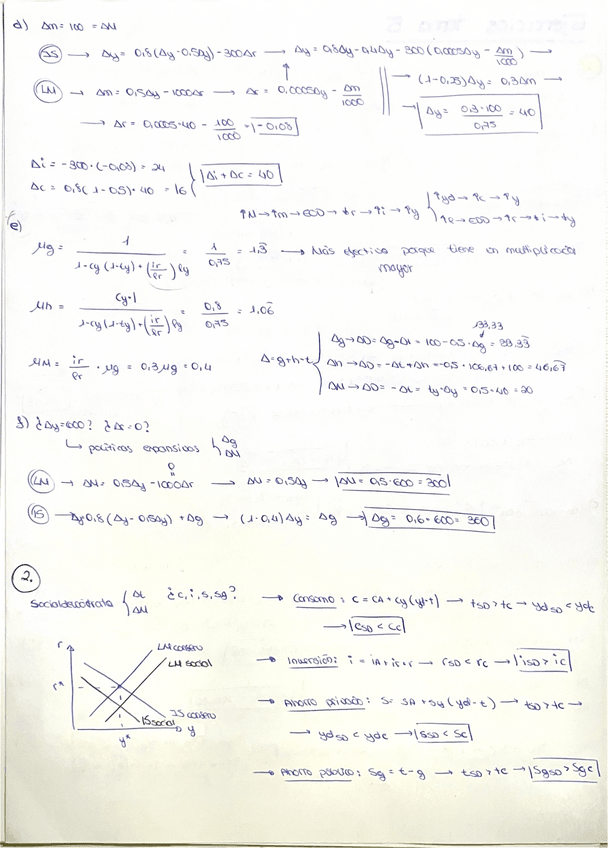 d) Δm = 100 = ΔM
IS → Δy = 0,8(Δy - 0,5Δy) - 300Δr → Δy = 0,8Δy - 0,4Δy - 300(0,0005Δy - Δm/1000) →
LM → Δm = 0,5Δy - 1000Δr → Δr = 0,0005Δy - Δm/1000 → (1-0,25)Δy = 0,3Δm →
→ Δr = 0,0005·40 - 100/1000 = -0,08 → Δy = 0,3·100/0,75 = 40
Δi = -300·(-0,08) = 24
Δc = 0,8(1-0,5)·40 = 16 Δi + Δc = 40
↑M → ↑m → EOD → ↓r → ↑i → ↑y ↑yd → ↑c → ↑y
e)
μg = 1 / 1-cy(1-ty)+(ir/lr)ly = 1/0,75 = 1.3 → Más efectiva porque tiene un multiplicador
mayor
μh = cy·1 / 1-cy(1-ty)+(ir/lr)ly = 0,8/0,75 = 1.06
133,33
μM = ir/lr · μg = 0,3μg = 0,4
Δ = g+h-t
Δg → ΔD = Δg - Δt = 100 - 0.5 · Δg = 33,33
Δh → ΔD = -Δt + Δh = -0.5 · 106,67 + 100 = 46,67
ΔM → ΔD = -Δt = ty·Δy = 0,5·40 = 20
f) ¿Δy=600? ¿Δr=0?
↳ políticas expansivas Δg ΔM
0
LM → ΔM = 0,5Δy - 1000Δr → ΔM = 0,5Δy → ΔM = 0,5·600 = 300
IS → Δy=0,8(Δy - 0,5Δy) + Δg → (1-0,4)Δy = Δg → Δg = 0,6·600 = 360
2.
Socialdemócrata Δt ΔM ¿c, i, s, sg?
→ Consumo: c = cA + cy(y-t) → tSD > tC → ydSD < ydC
→ cSD < cC
→ Inversión: i = iA + ir·r → rSD < rC → iSD > iC
→ Ahorro privado: s = sA + sy(y-t) → tSD > tC →
→ ydSD < ydC → sSD < sC
→ Ahorro público: sg = t - g → tSD > tC → SgSD > SgC
r
LM conserv
LM social
r*
IS conserv
IS social
y
y*